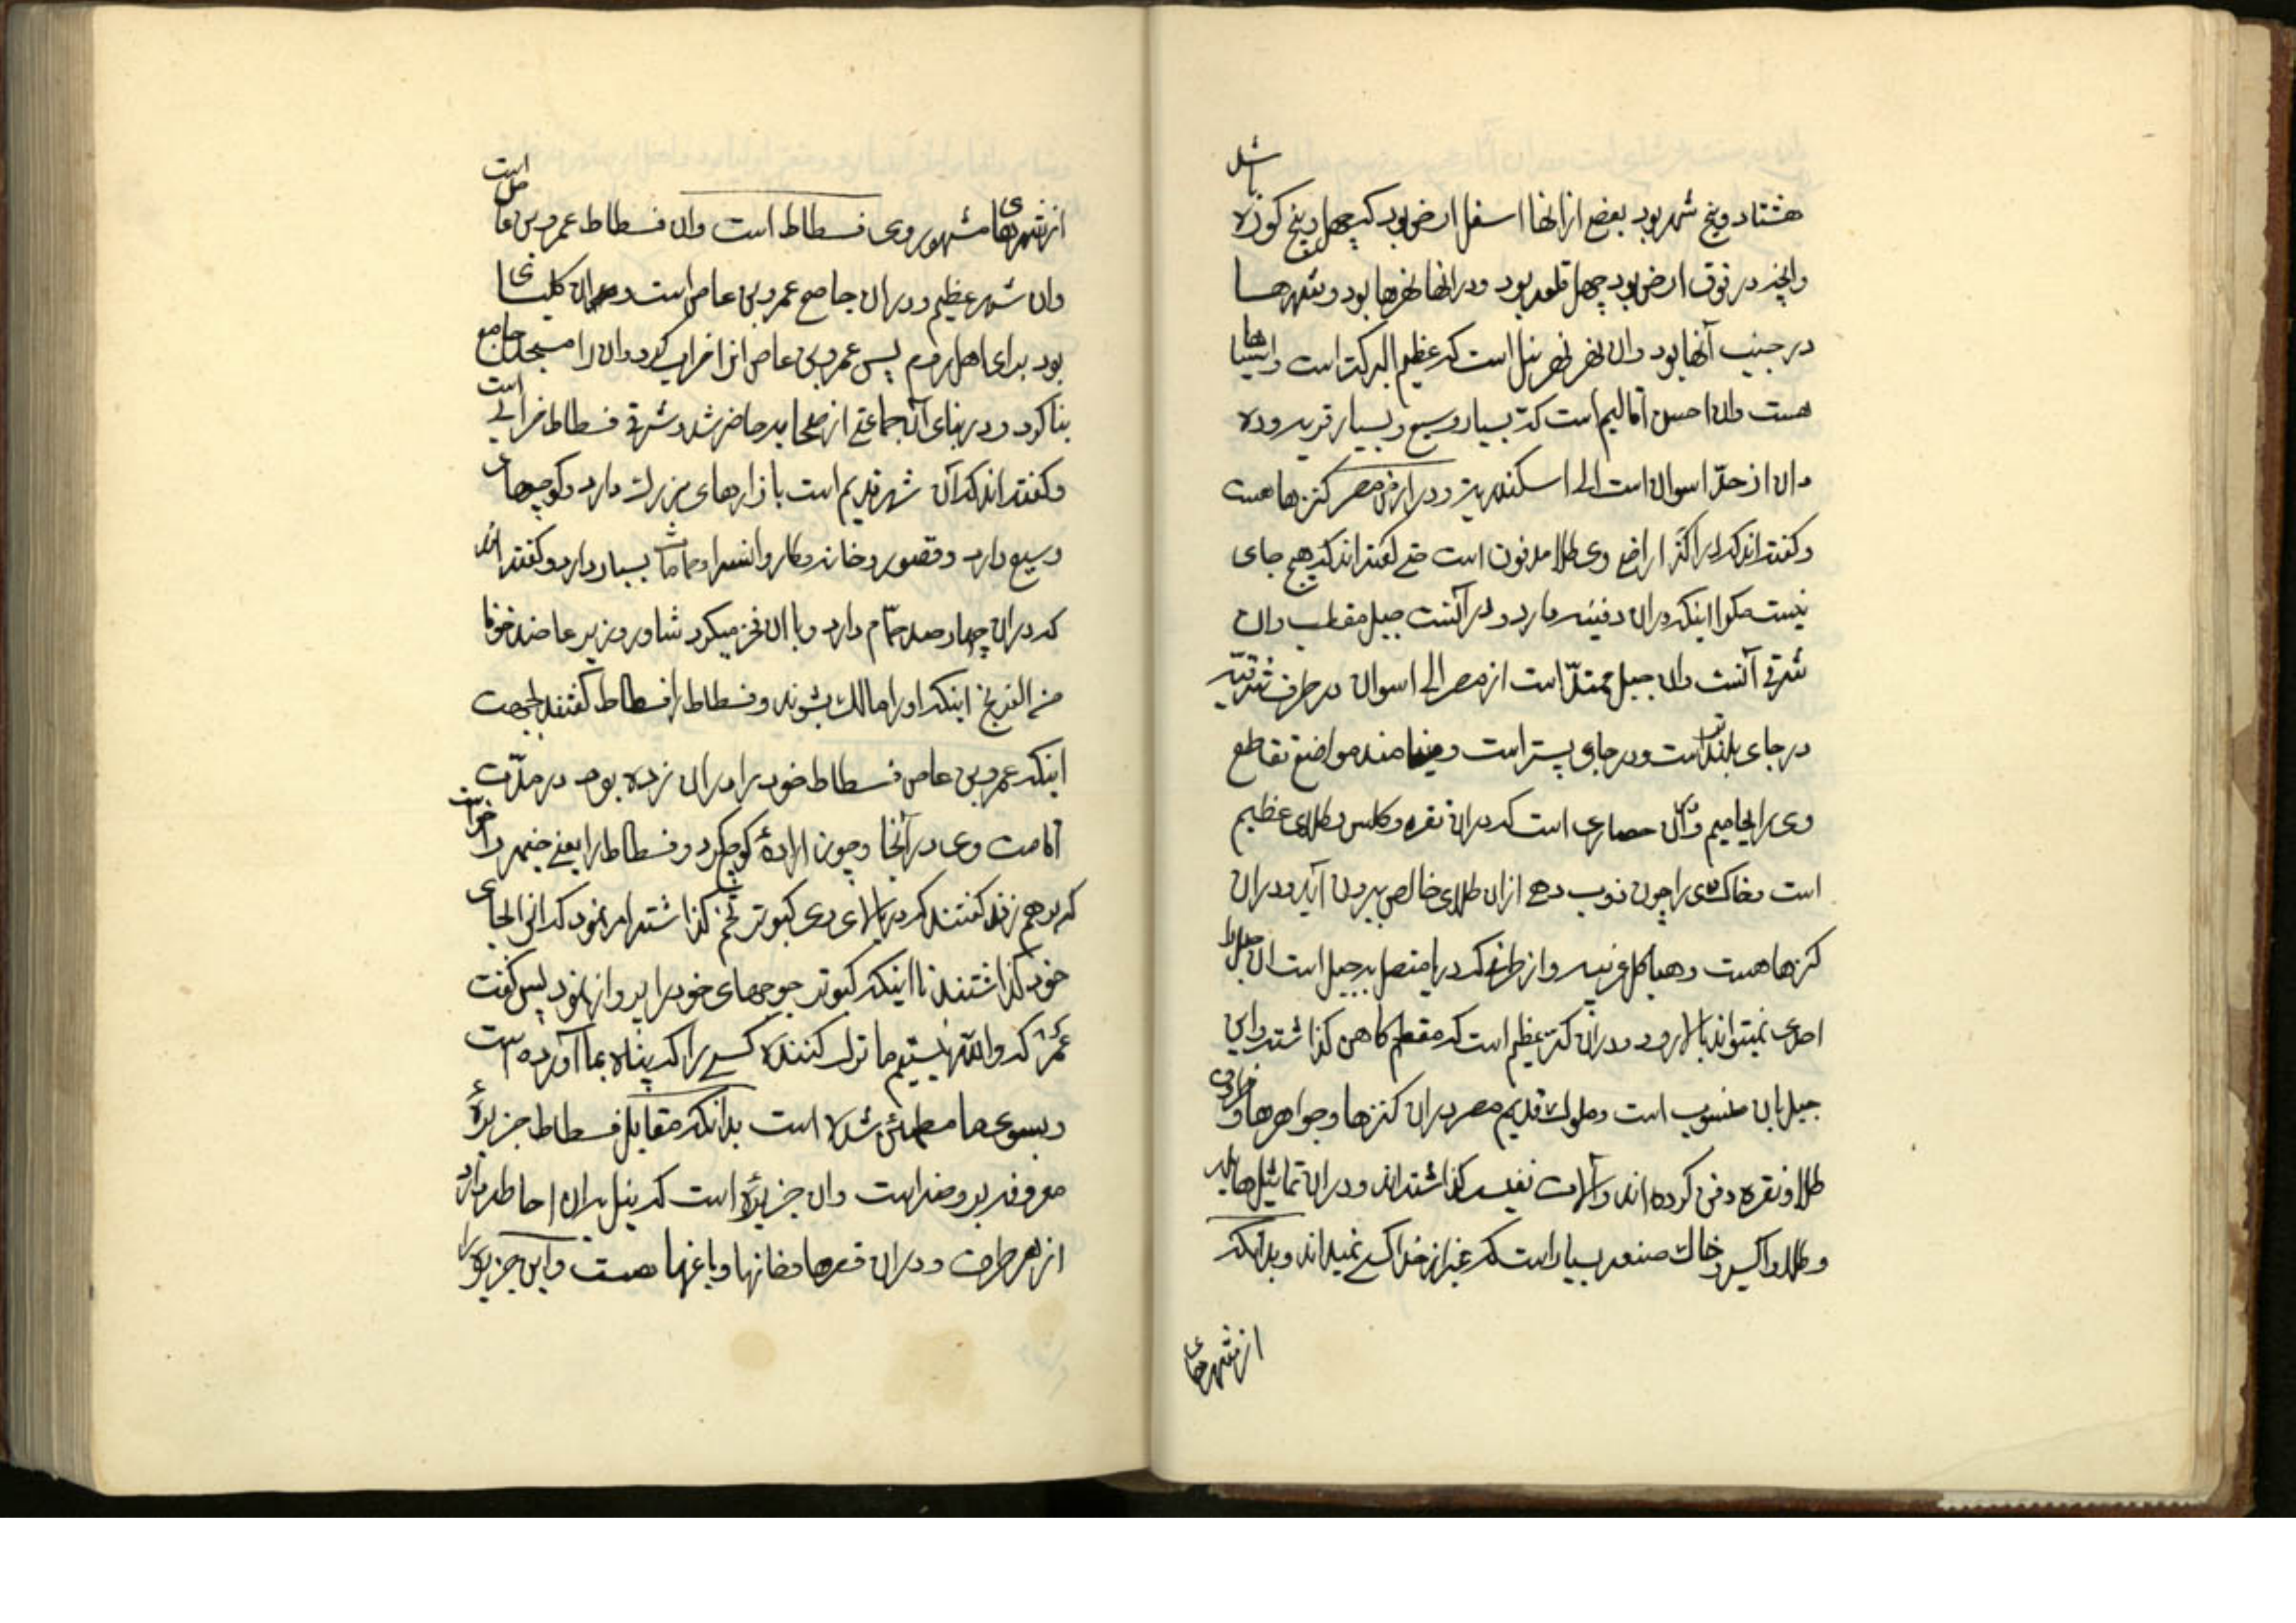 هشتاد و پنج شهر بود بعض از انها اسفل ارض بود که چهل و پنج کوره باشد
وانچه در فوق ارض بود چهل قلعه بود ودر انها نهرها بود وشهرها
در جنب آنها بود وان نهر نهر نیل است که عظیم البرکة است
هست وان احسن اقالیم است که بسیار وسیع و بسیار قریه وده
وان از حدّ اسوان است الی اسکندریة و در ارض مصر کنزها هست
وگفته اند که در اکثر اراضی وی طلا مدفون است حتی گفته اند که هیچ جای
نیست مکر اینکه دران دفینه دارد و در آنست جبل مقطب وان
شرقی آنست وان جبل ممتدّ است از مصر الی اسوان در طرف شرقیه
در جای بلندتر است ودر جای پستر است ومینامند مواضع تقاطع
وی را یحامیم وآن حصاری است که دران نقره وکلس وطلای عظیم
است وخاک وی را چون ذوب دهی ازان طلای خالص بیرون آید ودران
کنزها هست وهیاکل غریبه واز طرفی که دریا متصل بجبل است ان جبل را
احدی نمیتواند بالا رود ودران کنز عظیم است که مقطم کاهن کذاشته واین
جبل بان منسوب است وملوک قدیم مصر دران کنزها وجواهرها و
طلا ونقره دفن کرده اند وآلات نفیسه کذاشته اند ودران تماثیل هایله
وطلا واکسیر وخاک صنعه بسیار است که غیر از خدا کسی نمیداند وبدانکه
از شهرهای
از شهرهای مشهور وی فسطاط است وان فسطاط عمرو بن عاص است
وان شهر عظیم ودران جامع عمرو بن عاص است ودران کلیسائی
بود برای اهل روم پس عمرو بن عاص انرا خراب کرد وان را مسجد جامع
بنا کرد ودر بنای آن جماعتی از صحابه حاضر شد وشرقی فسطاط خرابی است
وگفته اند که آن شهر قدیم است بازارهای بزرک دارد وکوچهای
وسیع دارد وقصور وخانه وکاروانسرا وحماماتش بسیار دارد وگفته اند
که دران چهار صد حمّام دارد وبا ان فخر میکرد شاور وزیر عاضد خوفا
من الفرنج اینکه او را مالک بشوند وفسطاط را فسطاط گفتند بجهت
اینکه عمرو بن عاص فسطاط خود را دران زده بود در مدّت
اقامت وی در آنجا وچون اراده کوچ کرد وفسطاط را یعنی خیمه را خواست
که برهم زند گفتند که در بالای وی کبوتر تخم گذاشته امر نمود که انرا بجای
خود گذاشتند تا اینکه کبوتر جوجهای خود را پرواز نمود پس گفت
عمرو که والله نیستیم ما ترک کننده کسی را که پناه بما آورده است
وبسوی ما مطمئن شده است بدانکه مقابل فسطاط جزیرهٔ
معروفه بروضه است وان جزیرهٔ است که نیل بران احاطه دارد
از هر طرف ودران قصرها وخانها وباغها هست واین جزیره را